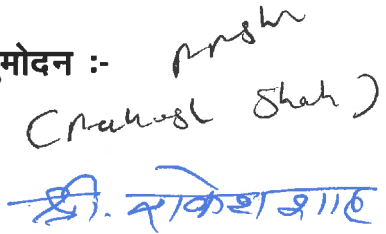 मोदन :-
(Rakesh Shah)
श्री. राकेश शाह